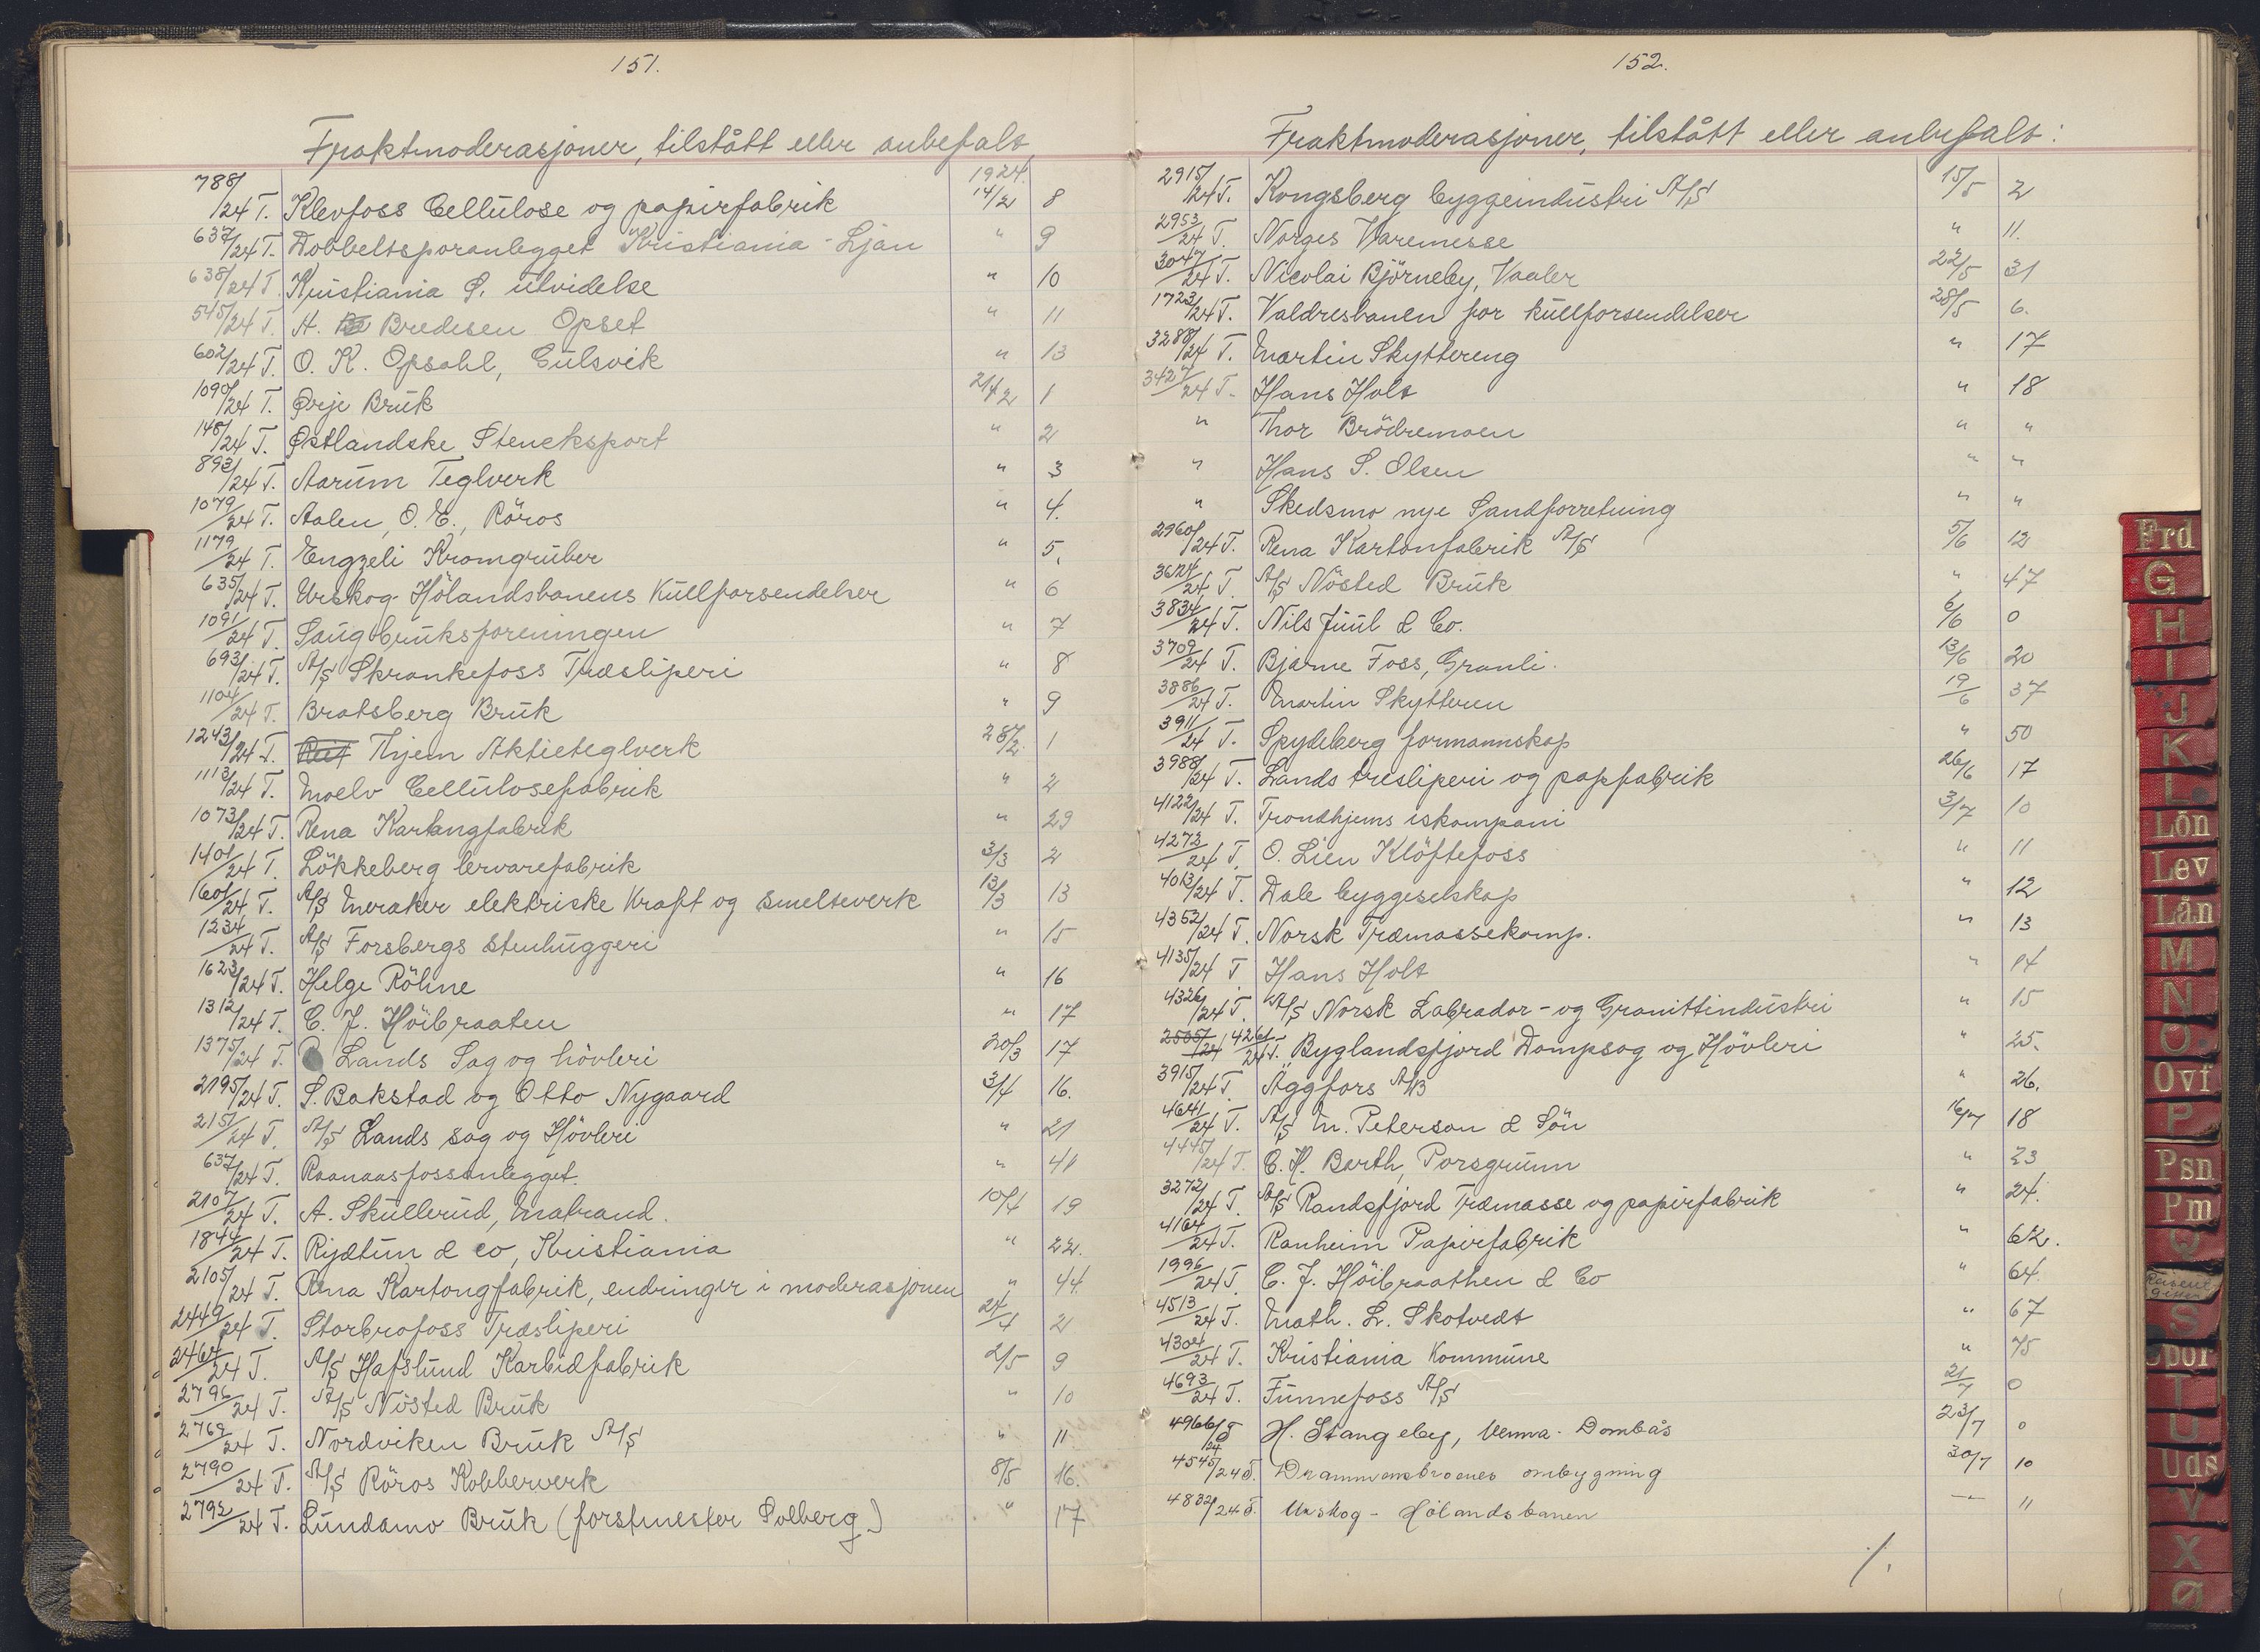 151.
Fraktmoderasjoner, tilstått eller anbefalt
1924.
788/24 T. Klevfoss Cellulose og papirfabrik 14/2 8
637/24 T. Dobbeltsporanlegget Kristiania - Ljan " 9
638/24 T. Kristiania Ö. utvidelse " 10
545/24 T. A. Bredesen Opset " 11
602/24 T. O. K. Opsahl, Gulsvik " 13
1090/24 T. Ørje Bruk 21/2 1
148/24 T. Østlandske Steneksport " 2
893/24 T. Aarum Teglverk " 3
1079/24 T. Aalen, O. E., Röros " 4.
1179/24 T. Engzeli Kromgruber " 5.
635/24 T. Urskog-Hölandsbanens Kullforsendelser " 6
1091/24 T. Saugbruksforeningen " 7
693/24 T. A/S Skrankefoss Træsliperi " 8
1104/24 T. Bratsberg Bruk " 9
1243/24 T. Thjem Aktieteglverk 28/2. 1
1113/24 T. Moelv Cellulosefabrik " 2
1073/24 T. Rena Kartongfabrik " 29
1401/24 T. Lökkeberg lervarefabrik 3/3 2
1601/24 T. A/S Meraker elektriske Kraft og Smelteverk 13/3 13
1234/24 T. A/S Forsbergs Stenhuggeri " 15
1623/24 T. Helge Röhne " 16
1312/24 T. C. J. Höibraaten " 17
1375/24 T. Lands Sag og hövleri 20/3 17
2195/24 T. S. Bakstad og Otto Nygaard 3/4 16.
2151/24 T. A/S Lands sag og Hövleri " 21
637/24 T. Raanaasfossanlegget. " 41
2107/24 T. A. Skullerud, Matrand. 10/4 19
1844/24 T. Rijdtun & co, Kristiania " 22.
2105/24 T. Rena Kartongfabrik, endringer i moderasjonen " 44.
2449/24 T. Storbrofoss Træsliperi 24/4 2
2464/24 T. A/S Hafslund Karbidfabrik 2/5 9
2796/24 T. A/S Nösted Bruk " 10
2769/24 T. Nordviken Bruk A/S " 11
2790/24 T. A/S Röros Kobberverk 8/5 16.
2792/24 T. Lundamo Bruk (forstmester Solberg) " 17
152.
Fraktmoderasjoner, tilstått eller anbefalt:
2915/24 T. Kongsberg byggeindustri A/S 15/5 2
2953/24 T. Norges Varemesse " 11.
3047/24 T. Nicolai Björneby, Vaaler 22/5 31
1723/24 T. Valdresbanen for kullforsendelser 28/5 6.
3288/24 T. Martin Skyttereng " 17
3427/24 T. Hans Holt " 18
" Thor Brödremoen " "
" Hans S. Olsen " "
" Skedsmo nye Sandforretning " "
2960/24 T. Rena Kartonfabrik A/S 5/6 12
3624/24 T. A/S Nösted Bruk " 47
3834/24 T. Nils Juul & Co. 6/6 0
3709/24 T. Bjarne Foss, Granli. 13/6 20
3886/24 T. Martin Skytteren 19/6 37
3911/24 T. Spydeberg formannskap " 50
3988/24 T. Lands tresliperi og papfabrik 26/6 17
4122/24 T. Trondhjems iskompani 3/7 10
4272/24 T. O. Lien Klöftefoss " 11
4013/24 T. Dale byggeselskap " 12
4352/24 T. Norsk Træmassekomp. " 13
4135/24 T Hans Holt " 14
4326/24 T. A/S Norsk Labrador- og Granittindustri " 15
2505/24 4261/24 T. Byglandsfjord Dampsag og Hövleri " 25.
3915/24 T. Äggfors A/B " 26.
4641/24 T. A/S M. Peterson & Sön 16/7 18
4445/24 T. C. H. Barth, Porsgrunn " 23
3272/24 T. A/S Randsfjord Træmasse og papirfabrik " 24.
4164/24 T. Ranheim Papirfabrik " 62.
1996/24 T. C. J. Höibraathen & Co " 64.
4513/24 T. Math. L. Skotvedt " 67
4304/24 T. Kristiania Kommune " 75
4693/24 T. Funnefoss A/S 21/7 0
4966/24 T H. Stangeby, Venna - Dombås 23/7 0
4545/24 T. Drammensbroenes ombygning 30/7 10
4832/24 T. Urskog - Hölandsbanen — 11
./.
Frd
G
H
I
J
K
L
Lön
Lev
Lån
M
N
O
Ovf
P
Psn
Pm
Q
S
T
U
Uds
V
X
Ø